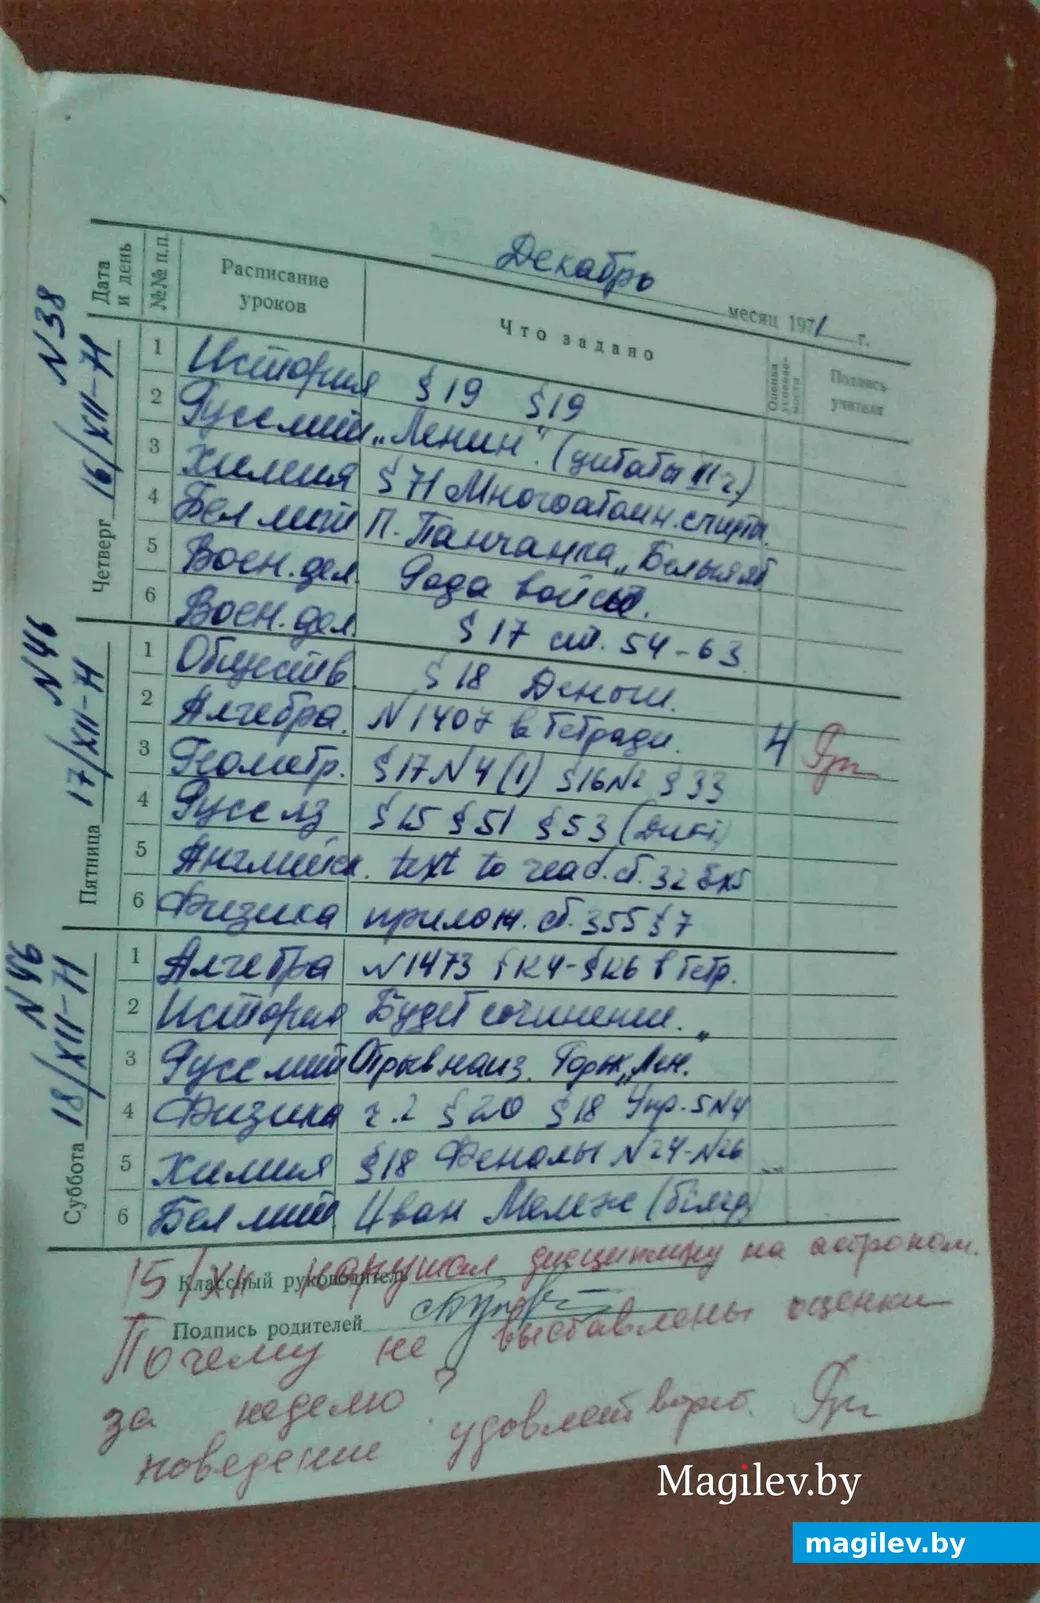 Декабрь месяц 1971 г.
Дата и день №№ п.п. Расписание уроков Что задано Оценка успеваемости Подпись учителя
N38
Четверг 16/XII-71
1 История §19 §19
2 Русс лит „Ленин". (цитаты III ч.)
3 Химия §71 Многоатомн. спирты.
4 Бел лит П. Панчанка „Белыя яб
5 Воен. дел. Рода войск.
6 Воен. дел. §17 ст. 54-63
N46
Пятница 17/XII-71
1 Обществ. §18 Деньги.
2 Алгебра. N1407 в тетради. 4
3 Геометр. §17 N4(1) §16 N2 §33
4 Русс яз §15 §51 §53 (Дикт)
5 Английск. text to read. ст. 32
6 Физика прилож. ст. 355 §7
N46
Суббота 18/XII-71
1 Алгебра N1473 §К4-§К6 в тетр.
2 История Будет сочинение.
3 Русс лит Отрыв наиз. Горьк „Лен.
4 Физика ч.2 §20 §18 Упр. 5 N4
5 Химия §18 Фенолы N24-N26
6 Бел лит Иван Мележ (біягр)
15/XII нарушал дисциплину на астроном.
Классный руководитель
Подпись родителей
Почему не выставлены оценки
за неделю?
поведение удовлетворит.
Magilev.by
magilev.by